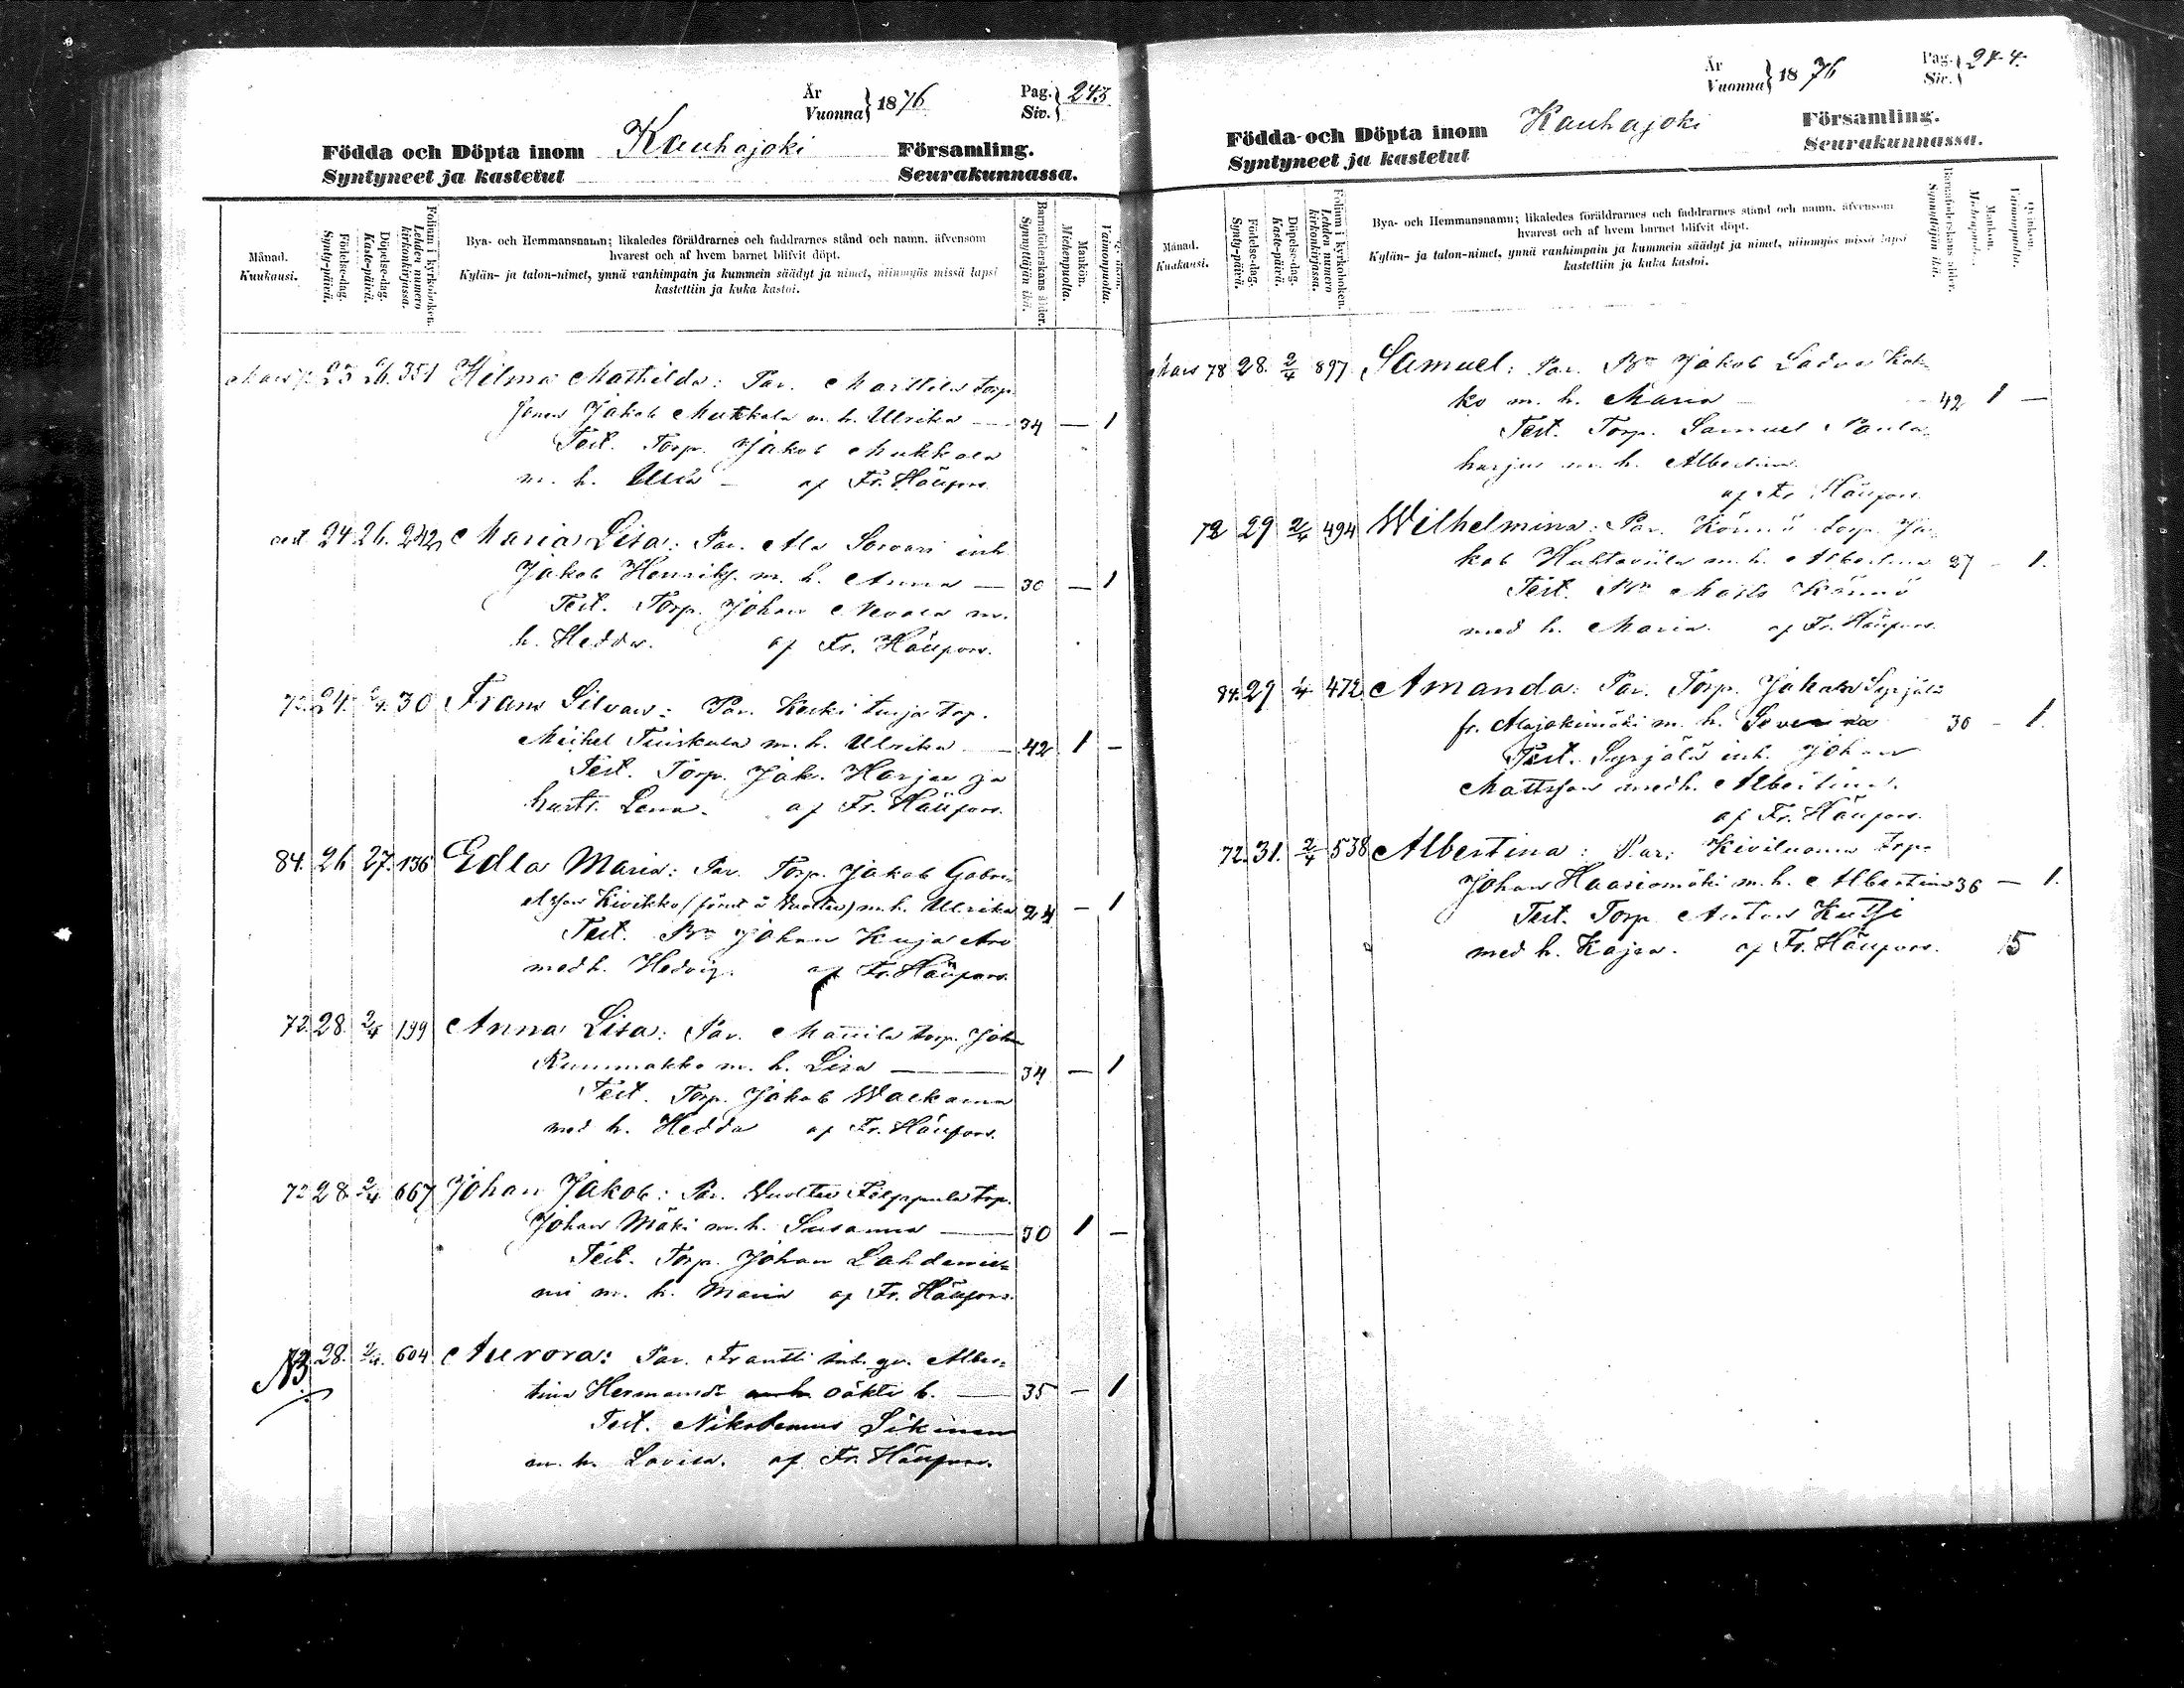 År
Vuonna } 1876
Pag.
Siv. } 243
Födda och Döpta inom Kauhajoki Församling.
Syntyneet ja kastetut Seurakunnassa.
Månad.
Kuukausi.
Födelse-dag.
Synty-päivä.
Döpelse-dag.
Kaste-päivä.
Folium i kyrkoboken.
Lehden numero kirkonkirjassa.
Bya- och Hemmansnamn; likaledes föräldrarnes och faddrarnes stånd och namn, äfvensom
hvarest och af hvem barnet blifvit döpt.
Kylän- ja talon-nimet, ynnä vanhimpain ja kummein säädyt ja nimet, niinmyös missä lapsi
kastettiin ja kuka kastoi.
Barnaföderskans ålder.
Synnyttäjän ikä.
Mankön.
Miehenpuolta.
Qvinkön.
Vaimonpuolta.
Mars 23 26. 351 Hilma Mathilda: Par. Marttila torp.
Jakob Mukkala m. h. Ulrika — 34 — 1
Test. Torp. Jakob Mukkala
m. h. Ulla — af Fr. Häupors.
24 26. 242 Maria Lisa: Par. Ala Sorvari inh.
Jakob Henriks. m. h. Anna — 30 — 1
Test. Torp. Johan Nevala m.
h. Hedda. af Fr. Häupors.
72. 24. 2/4. 30 Frans Silvan: Par. Koski torp.
Mickel Tuiskula m. h. Ulrika — 42 1 —
Test. Torp. Jak. Harja ja
hustr. Lena. af Fr. Häupors.
84. 26 27. 136 Edla Maria: Par. Torp. Jakob Gabri-
elsson Kivikko m. h. Ulrika 24 — 1
Test. Bn Johan Kuja Aro
med h. Hedvig. af Fr. Häupors.
72. 28. 2/4 199 Anna Lisa: Par. Mannila torp. Joh.
Rummakko m. h. Lisa — 34 — 1
Test. Torp. Jakob Wackama
med h. Hedda af Fr. Häupors.
72 28 2/4 667 Johan Jakob: Par. Filppula torp.
Johan Mäki m. h. Susanna — 30 1 —
Test. Torp. Johan Lahdenie-
mi m. h. Maria af Fr. Häupors.
28. 2/4. 604 Aurora: Par. Frantti inh. qv. Alber-
tina Hermansdr oäkta b. — 35 — 1
Test. Nikodemus
m. h. Lovisa. af Fr. Häupors.
År
Vuonna } 1876
Pag.
Siv. } 244
Födda och Döpta inom Kauhajoki Församling.
Syntyneet ja kastetut Seurakunnassa.
Månad.
Kuukausi.
Födelse-dag.
Synty-päivä.
Döpelse-dag.
Kaste-päivä.
Folium i kyrkoboken.
Lehden numero kirkonkirjassa.
Bya- och Hemmansnamn; likaledes föräldrarnes och faddrarnes stånd och namn, äfvensom
hvarest och af hvem barnet blifvit döpt.
Kylän- ja talon-nimet, ynnä vanhimpain ja kummein säädyt ja nimet, niinmyös missä lapsi
kastettiin ja kuka kastoi.
Barnaföderskans ålder.
Synnyttäjän ikä.
Mankön.
Miehenpuolta.
Qvinkön.
Vaimonpuolta.
Mars 78 28. 2/4 897 Samuel: Par. Bn Jakob Ladva Kok-
ko m. h. Maria — 42 1 —
Test. Torp. Samuel Panula-
harju m. h. Albertina
af Fr Häupors.
72 29 2/4 494 Wilhelmina: Par. Könnö torp. Ja-
kob Huhtaviita m. h. Albertina 27 — 1.
Test. Bn Matts Könnö
med h. Maria. af Fr. Häupors.
84. 29 1/4 472 Amanda: Par. Torp. Johan Syrjälä
fr. Alajokimäki m. h. Soverina 30 — 1.
Test. Syrjälä inh. Johan
Mattsson med h. Albertina.
af Fr. Häupors.
72. 31. 2/4 538 Albertina: Par. Kiviluoma torp.
Johan Haasiomäki m. h. Albertina 36 — 1.
Test. Torp Anton
med h. Kajsa. af Fr. Häupors. 15